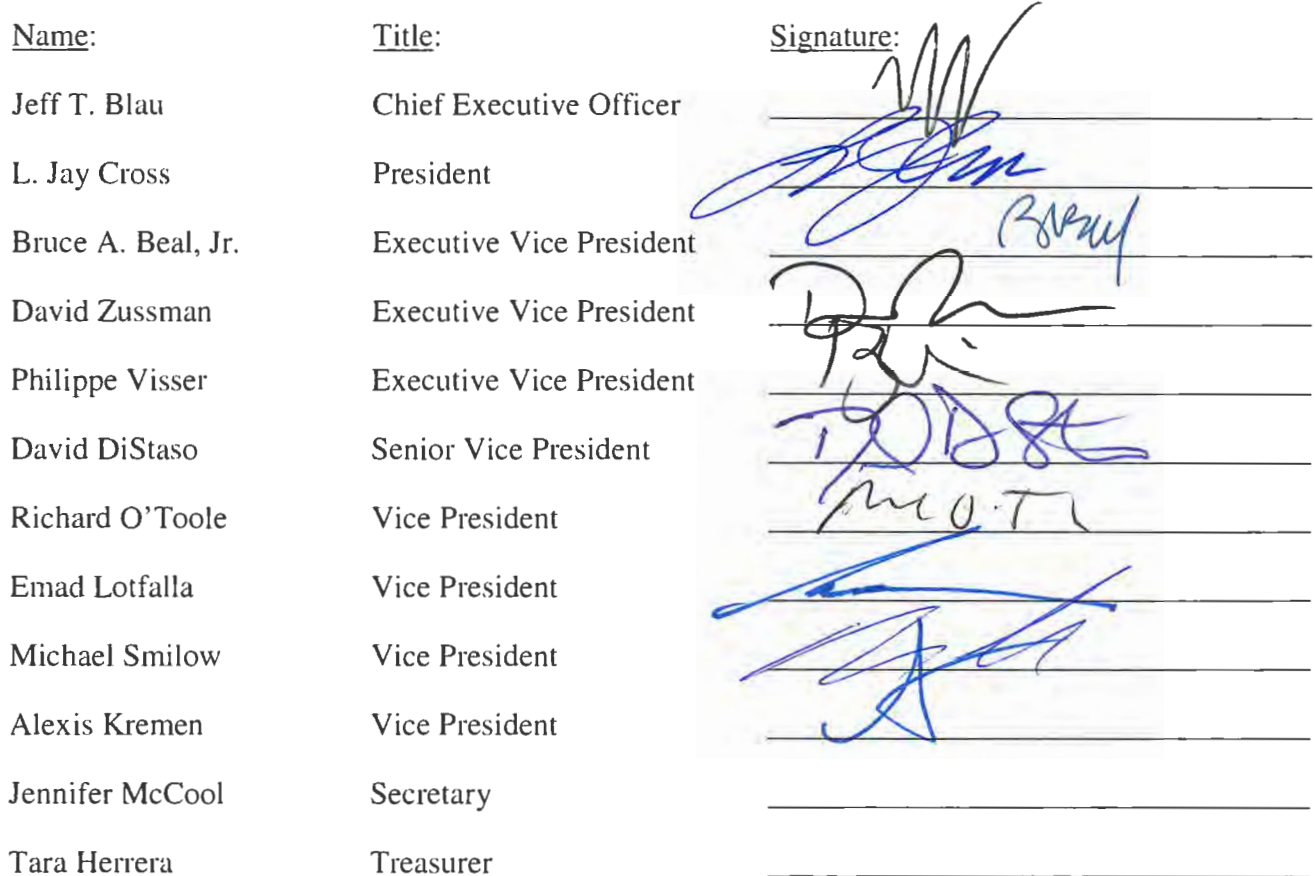 Name: Title: Signature:
Jeff T. Blau Chief Executive Officer
L. Jay Cross President
Bruce A. Beal, Jr. Executive Vice President
David Zussman Executive Vice President
Philippe Visser Executive Vice President
David DiStaso Senior Vice President
Richard O'Toole Vice President
Emad Lotfalla Vice President
Michael Smilow Vice President
Alexis Kremen Vice President
Jennifer McCool Secretary
Tara Herrera Treasurer